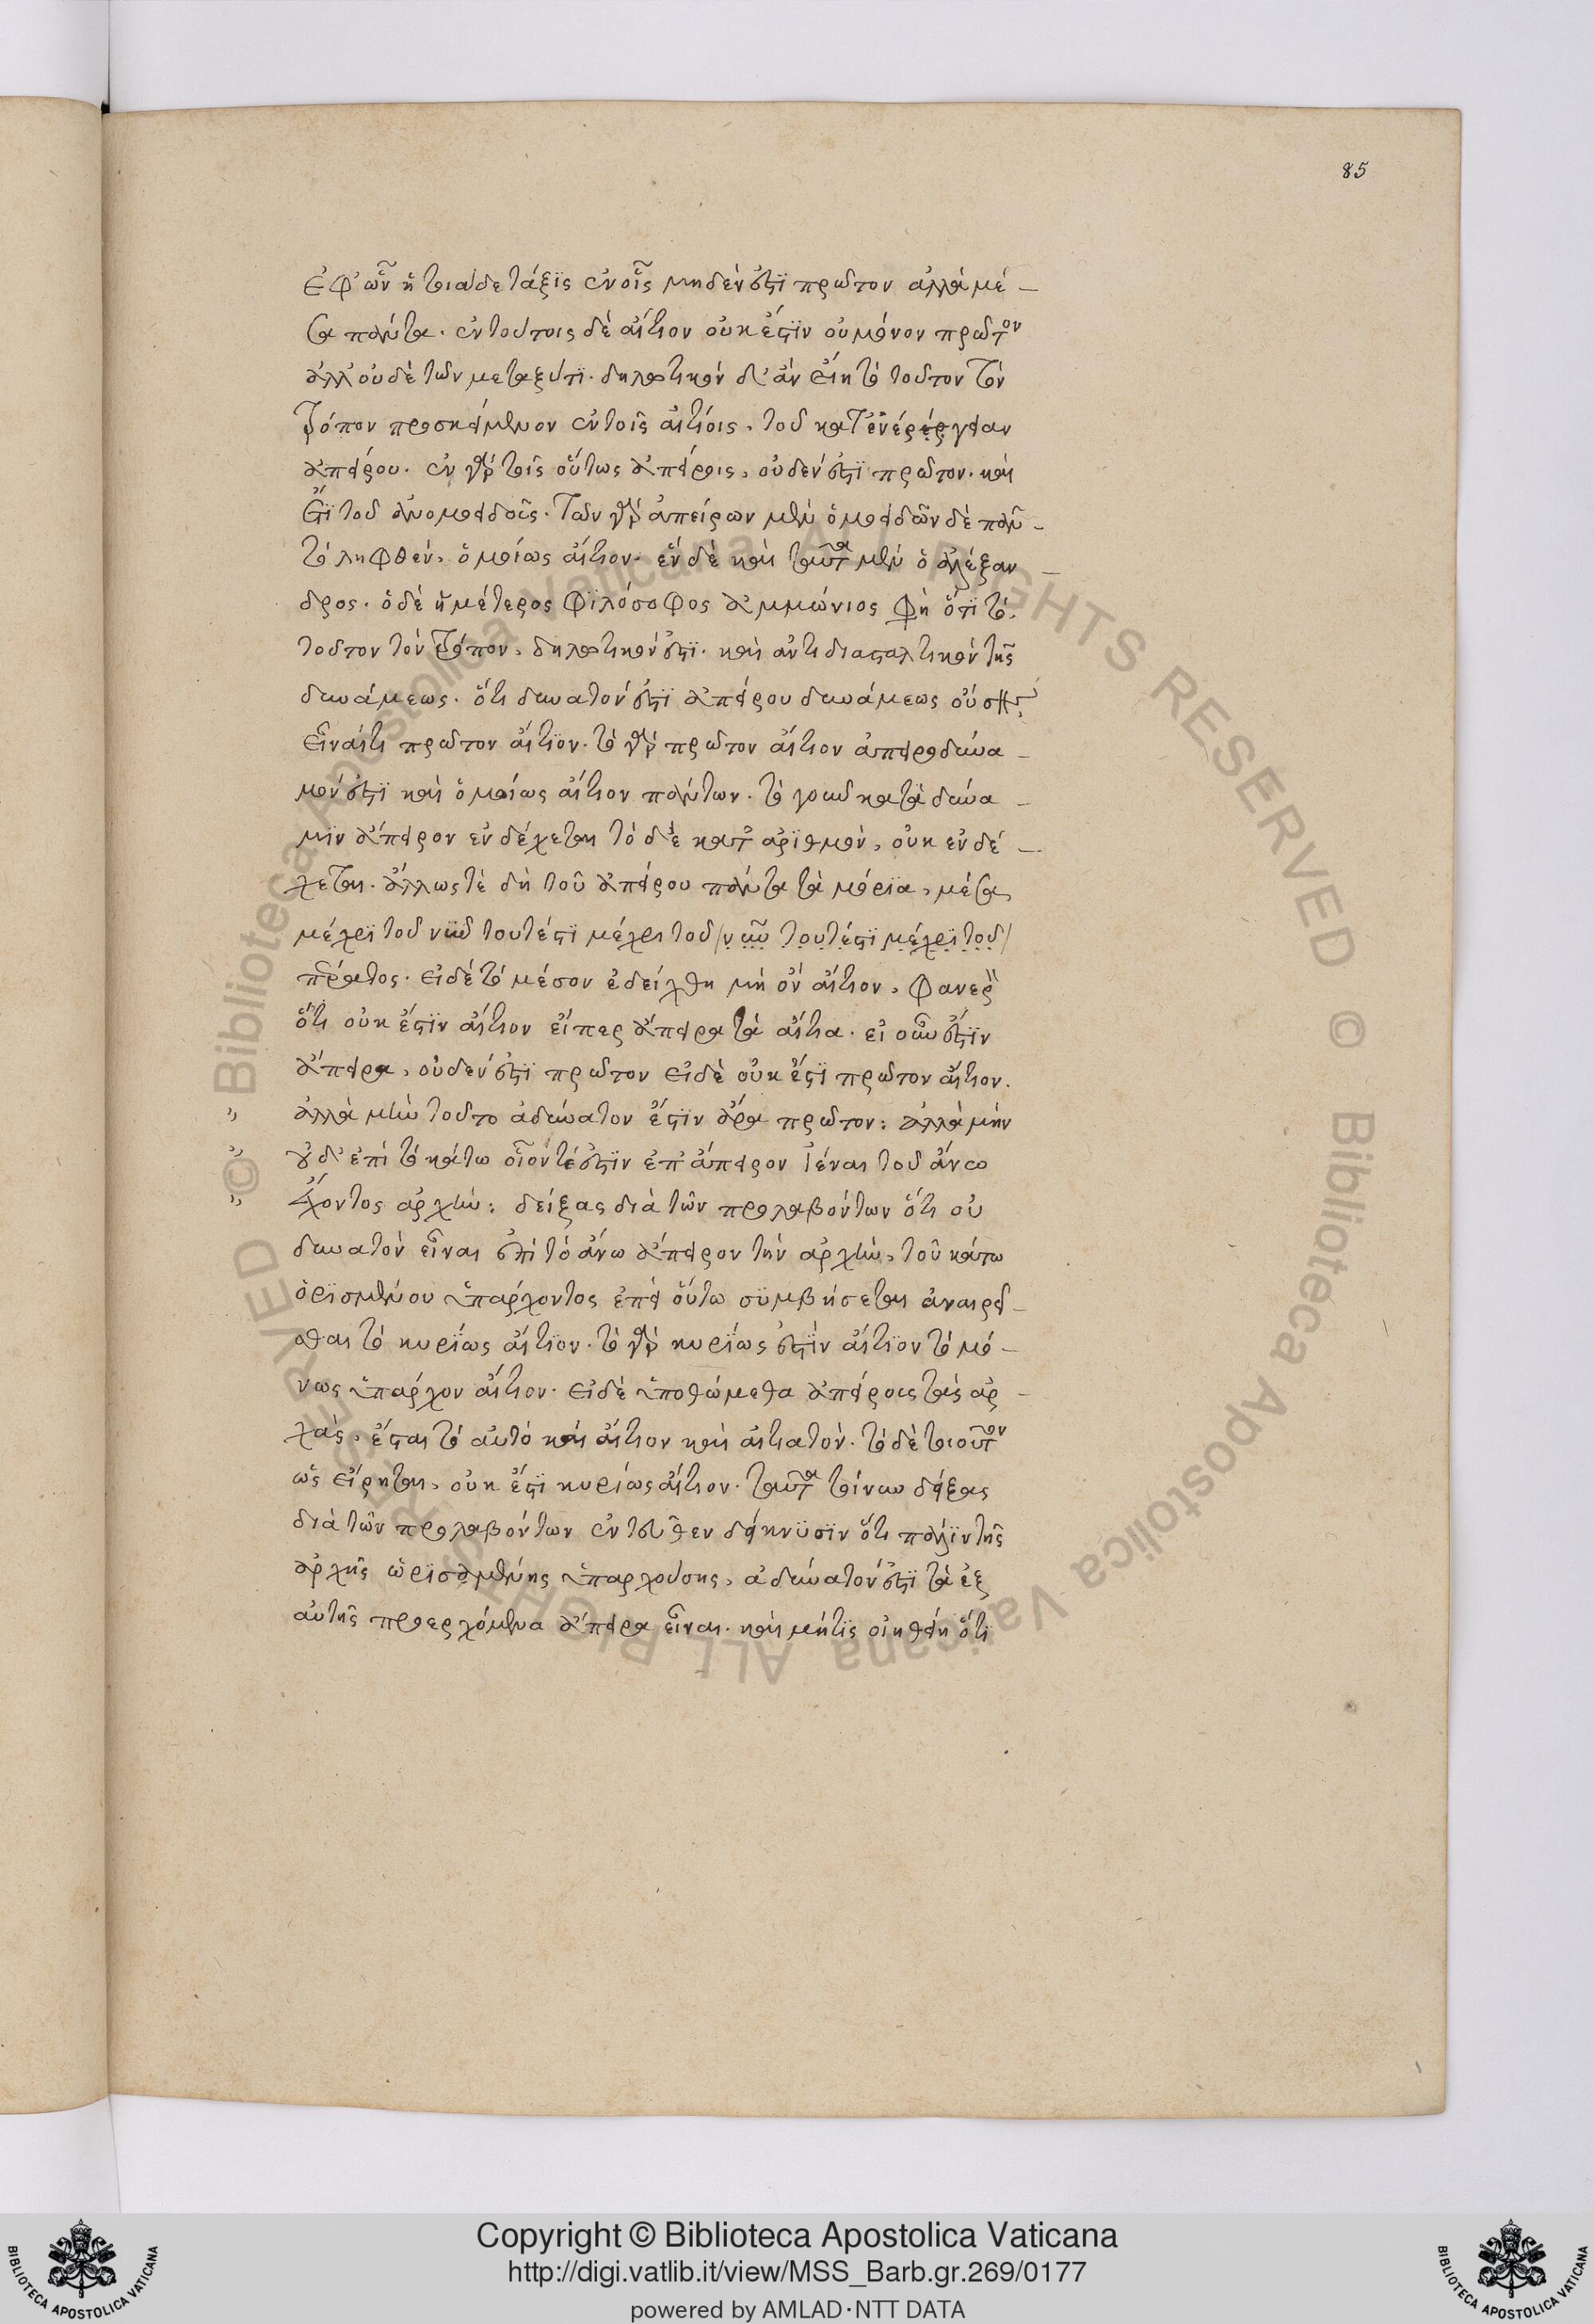 85
ἐφ' ὧν ἡ τοιάδε τάξϊς ἐν οἷς μηδέν ἐστϊ πρῶτον ἀλλὰ μέ-
σα πάντα. ἐν τούτοις δὲ αἴτιον οὐκ ἔστϊν οὐ μόνον πρῶτον
ἀλλ' οὐδὲ τῶν μεταξύ τϊ. δηλωτικὸν δ' ἂν εἴη τὸ τοῦτον τὸν
τρόπον προσκείμενον ἐν τοῖς αἰτίοις, τοῦ κατ' ἐνέρέργειαν
ἀπείρου. ἐν γὰρ τοῖς οὕτως ἀπείροις, οὐδέν ἐστϊ πρῶτον. καὶ
ἔτϊ τοῦ ἀνομοειδοῦς. τῶν γὰρ ἀπείρων μὲν ὁμοειδῶν δὲ πᾶν
τὸ ληφθὲν, ὁμοίως αἴτιον. ἓν δὲ καὶ ταῦτα μὲν ὁ ἀλέξαν-
δρος. ὁ δὲ ἡμέτερος φϊλόσοφος ἀμμώνιος φησὶ ὅτϊ τὸ
τοῦτον τὸν τρόπον, δηλωτικόν ἐστϊ. καὶ ἀντιδιασταλτικὸν τῆς
δυνάμεως. ὅτι δυνατόν ἐστϊ ἀπείρου δυνάμεως οὔσης
εἶναί τι πρῶτον αἴτϊον. τὸ γὰρ πρῶτον αἴτιον ἀπειροδύνα-
μόν ἐστϊ καὶ ὁμοίως αἴτιον πάντων. τὸ γοῦν κατὰ δύνα-
μϊν ἄπειρον ἐνδέχεται τὸ δὲ κατ' ἀρϊθμὸν, οὐκ ἐνδέ-
χεται. ἄλλως τὲ δὴ τοῦ ἀπείρου πάντα τὰ μόρϊα, μέσα,
μέχρϊ τοῦ νῦν τουτέστϊ μέχρι τοῦ/νῦν τουτέστϊ μέχρϊ τοῦ/
πέρατος. εἰ δὲ τὸ μέσον ἐδείχθη μὴ ὂν αἴτιον, φανερὸν
ὅτι οὐκ ἔστϊν αἴτιον εἴπερ ἄπειρα τὰ αἴτια. εἰ οὖν ἐστϊν
ἄπειρα, οὐδέν ἐστϊ πρῶτον εἰ δὲ οὐκ ἔστϊ πρῶτον αἴτιον.
ἀλλὰ μὴν τοῦτο ἀδύνατον ἔστϊν ἄρα πρῶτον: ἀλλὰ μὴν
οὐδ' ἐπὶ τὸ κάτω οἷόν τέ ἐστϊν ἐπ' ἄπειρον ἰέναι τοῦ ἄνω
ἔχοντος ἀρχήν: δείξας διὰ τῶν προλαβόντων ὅτι οὐ
δυνατὸν εἶναι ἐπὶ τὸ ἄνω ἄπειρον τὴν ἀρχὴν, τοῦ κάτω
ὁρϊσμένου ὑπάρχοντος ἐπεὶ οὕτω συμβήσεται ἀναιρεῖ-
σθαι τὸ κυρϊως αἴτϊον. τὸ γὰρ κυρϊως ἐστϊν αἴτϊον τὸ μό-
νως ὑπάρχον αἴτιον. εἰ δὲ ὑποθώμεθα ἀπείρους τὰς ἀρ-
χὰς, ἔσται τὸ αὐτὸ καὶ αἴτιον καὶ αἰτιατόν. τὸ δὲ τοιοῦτον
ὡς εἴρηται, οὐκ ἔστϊ κυρίως αἴτιον. ταῦτα τοίνυν δείξας
διὰ τῶν προλαβόντων ἐντεῦθεν δείκνϋσϊν ὅτι πάλϊν τῆς
ἀρχῆς ὡρϊσμένης ὑπαρχούσης, ἀδύνατόν ἐστϊ τὰ ἐξ
αὐτῆς προερχόμενα ἄπειρα εἶναι. καὶ μήτϊς οἰηθείη ὅτϊ
Copyright © Biblioteca Apostolica Vaticana
http://digi.vatlib.it/view/MSS_Barb.gr.269/0177
powered by AMLAD·NTT DATA